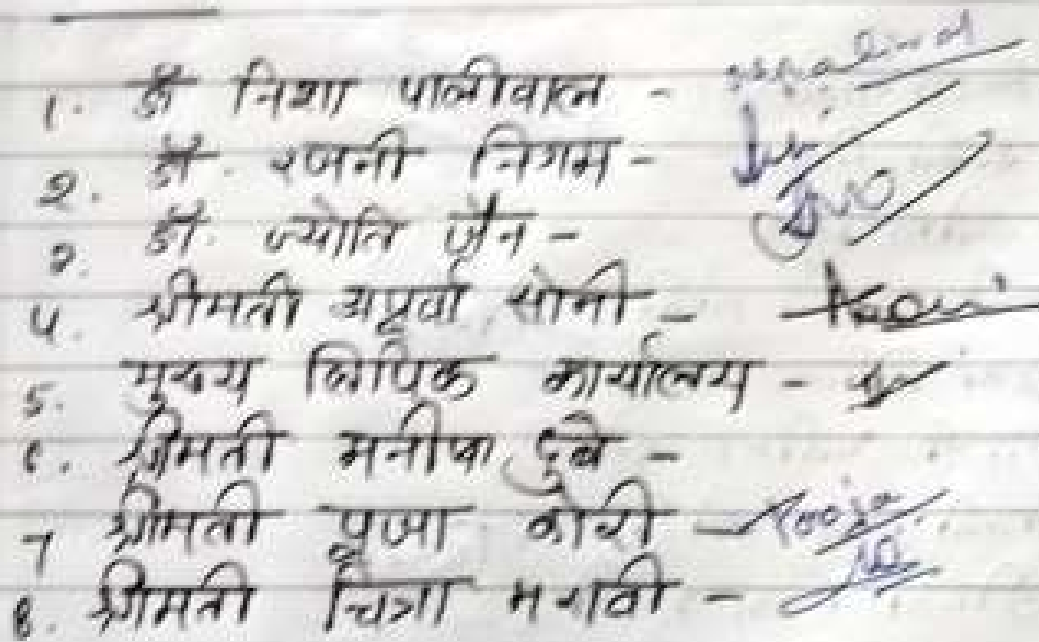 1. डॉ निशा पालीवाल -
2. डॉ. रजनी निगम -
3. डॉ. ज्योति जैन -
4. श्रीमती अपूर्वा सोनी -
5. मुख्य लिपिक कार्यालय -
6. श्रीमती मनीषा दुबे -
7 श्रीमती पूजा कोरी - Pooja
8. श्रीमती चित्रा मरावी -